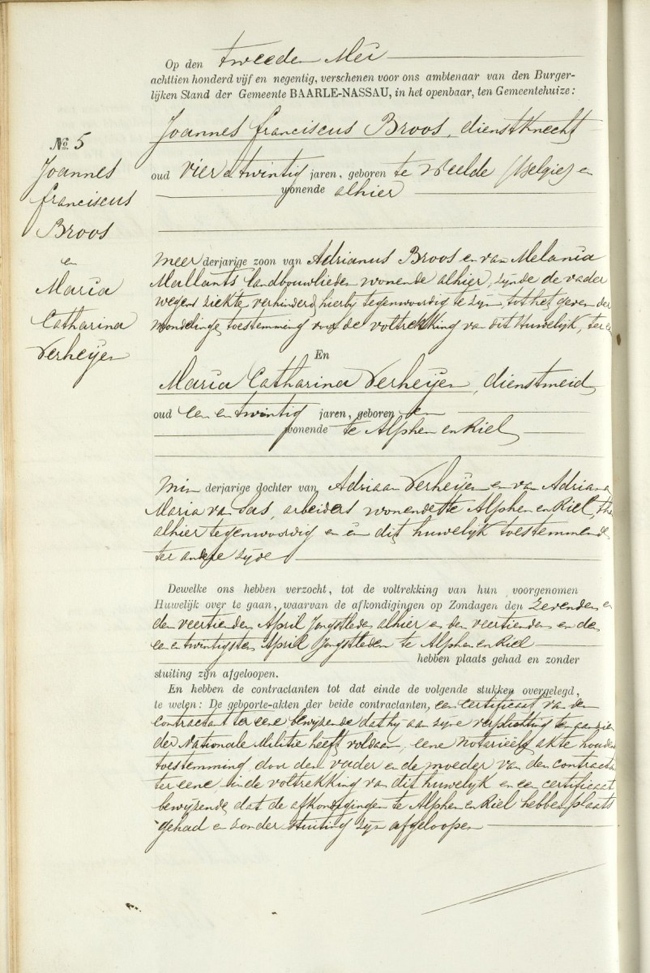 Op den tweeden Mei
achttien honderd vijf en negentig, verschenen voor ons ambtenaar van den Burger-
lijken Stand der Gemeente BAARLE-NASSAU, in het openbaar, ten Gemeentehuize:
No. 5
Joannes
franciscus
Broos
en
Maria
Catharina
Verheijen
Joannes franciscus Broos, dienstknecht
oud vier en twintig jaren, geboren te Weelde (Belgie) en
wonende alhier
meer derjarige zoon van Adrianus Broos en van Melania
Mallants landbouwlieden wonende alhier, zijnde de vader
wegens ziekte verhinderd hierbij tegenwoordig te zijn tot het geven der
mondelinge toestemming voor de voltrekking van dit Huwelijk, ter
En
Maria Catharina Verheijen, dienstmeid
oud een en twintig jaren, geboren en
wonende te Alphen en Riel
min derjarige dochter van Adriaan Verheijen en van Adriana
Maria van Sas, arbeiders wonende te Alphen en Riel,
alhier tegenwoordig en in dit huwelijk toestemmende
ter andere zijde
Dewelke ons hebben verzocht, tot de voltrekking van hun voorgenomen
Huwelijk over te gaan, waarvan de afkondigingen op Zondagen den zevenden en
den veertienden April Jongstleden alhier en den veertienden en den
een en twintigsten April Jongstleden te Alphen en Riel
hebben plaats gehad en zonder
stuiting zijn afgeloopen.
En hebben de contractanten tot dat einde de volgende stukken overgelegd,
te weten: De geboorte-akten der beide contractanten, een certificaat van den
contractant ter eene bewijzende dat hij aan zijne verplichting ten aanzien
der Nationale Militie heeft voldaan, eene notariëele akte houdende
toestemming door den vader en de moeder van den contractant
ter eene in de voltrekking van dit huwelijk en een certificaat
bewijzende dat de afkondigingen te Alphen en Riel hebben plaats
gehad en zonder stuiting zijn afgeloopen